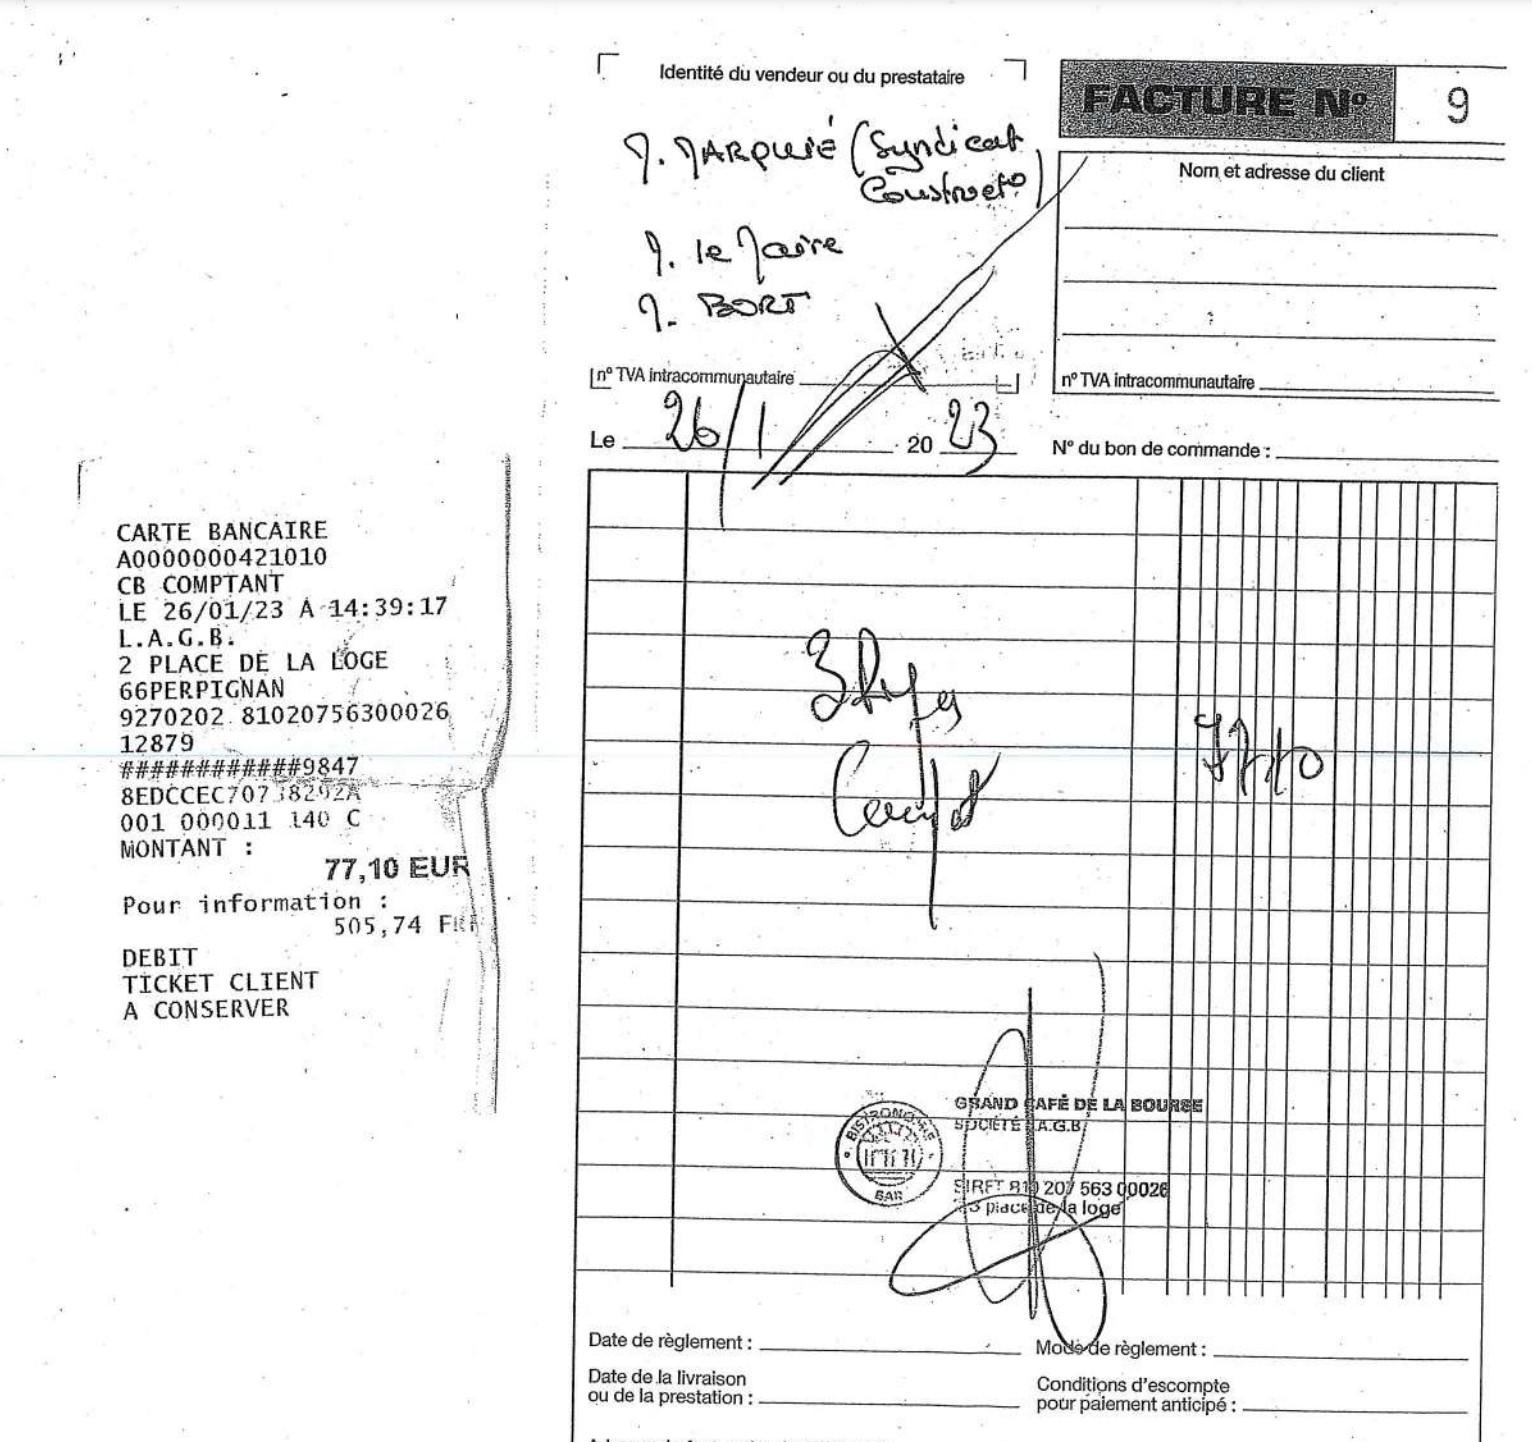 CARTE BANCAIRE
A0000000421010
CB COMPTANT
LE 26/01/23 A 14:39:17
L.A.G.B.
2 PLACE DE LA LOGE
66PERPIGNAN
9270202 81020756300026
12879
############9847
8EDCCEC70738292A
001 000011 140 C
MONTANT :
77,10 EUR
Pour information :
505,74 FRF
DEBIT
TICKET CLIENT
A CONSERVER
Identité du vendeur ou du prestataire
M. MARQUIÉ (Syndicat
Constructo)
M. le Maire
M. BORT
nº TVA intracommunautaire
Le 26/1 2023
FACTURE Nº 9
Nom et adresse du client
nº TVA intracommunautaire
Nº du bon de commande :
3 Repas
Complet
77,10
BISTRONOMIE
BAR
GRAND CAFÉ DE LA BOURSE
SOCIÉTÉ L.A.G.B.
SIRET 810 207 563 00026
place de la loge
Date de règlement :
Mode de règlement :
Date de la livraison
ou de la prestation :
Conditions d'escompte
pour paiement anticipé :